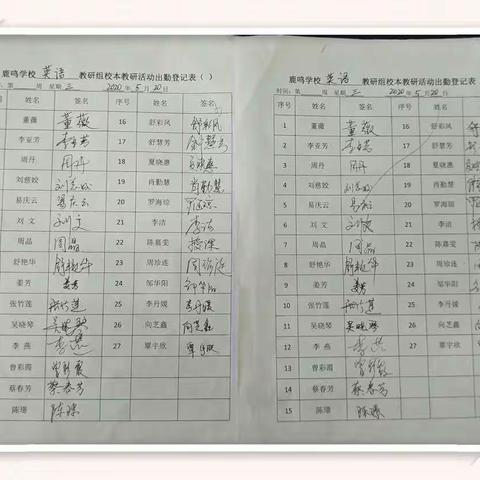 鹿鸣学校 英语 教研组校本教研活动出勤登记表（ ）
周 星期 三 2020 年 5 月 20 日
姓名 签名 序号 姓名 签名
董薇 董薇 16 舒彩凤 舒彩凤
李亚芳 李亚芳 17 舒慧芳 舒慧芳
周丹 周丹 18 夏晓惠 夏晓惠
刘慈姣 刘慈姣 19 肖勤慧 肖勤慧
易庆云 易庆云 20 罗海琼 罗海琼
刘 文 刘文 21 李洁 李洁
周晶 周晶 22 陈嘉雯
舒艳华 舒艳华 23 周珍连 周珍连
姜芳 姜芳 24 邹华阳 邹华阳
张竹莲 张竹莲 25 李丹媛 李丹媛
吴晓琴 吴晓琴 26 向芝鑫 向芝鑫
李 燕 李燕 27 覃宇欣 覃宇欣
曾彩霞 曾彩霞
蔡春芳 蔡春芳
陈璟 陈璟
鹿鸣学校 英语 教研组校本教研活动出勤登记表
时间：第 周 星期 三 2020 年 5 月 20 日
序号 姓名 签名 序号 姓名
1 董薇 董薇 16 舒彩凤
2 李亚芳 李亚芳 17 舒慧芳
3 周丹 周丹 18 夏晓惠
4 刘慈姣 刘慈姣 19 肖勤慧
5 易庆云 易庆云 20 罗海琼
6 刘 文 刘文 21 李洁
7 周晶 周晶 22 陈嘉雯
8 舒艳华 舒艳华 23 周珍连
9 姜芳 姜芳 24 邹华阳
10 张竹莲 张竹莲 25 李丹媛
11 吴晓琴 吴晓琴 26 向芝鑫
12 李 燕 李燕 27 覃宇欣
13 曾彩霞 曾彩霞
14 蔡春芳 蔡春芳
15 陈璟 陈璟